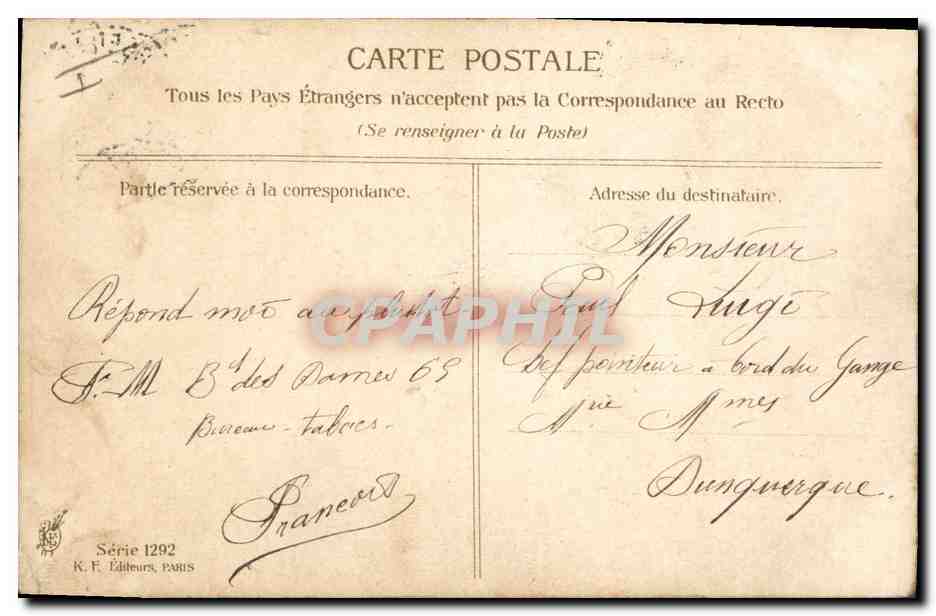 CARTE POSTALE
Tous les Pays Étrangers n'acceptent pas la Correspondance au Recto
(Se renseigner à la Poste)
Partie réservée à la correspondance.
Répond moi au plutôt
F. M B d des Dames 69
Bureau - tabacs -
François
Série 1292
K. F. Éditeurs, PARIS
Adresse du destinataire.
Monsieur
Paul
pointeur à bord du Gange
Mmes
Dunquerque.
CPAPHIL